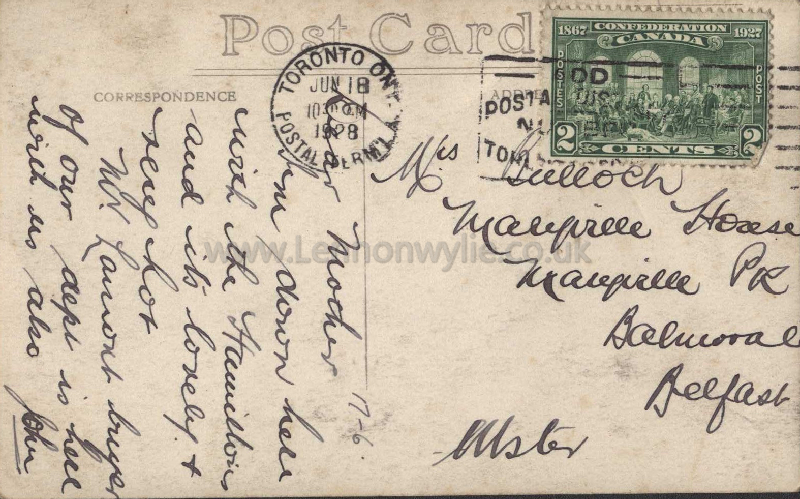 Post Card
CORRESPONDENCE
TORONTO ONT.
JUN 18
1928
POSTAL TERM'L A
1867 CONFEDERATION 1927
CANADA
POSTES POST
2 CENTS 2
POSTA
Dear Mother 17-6.
I'm down here
with the Hamiltons
and its lovely &
very hot
Mr Lamont buyer
of our dept is here
with us also
John
Mrs Culloch
Maryville House
Maryville Pk
Balmoral
Belfast
Ulster
www.Lennonwylie.co.uk